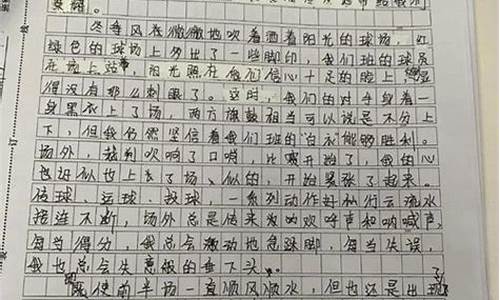 冬季风在微微地吹着洒着阳光的球场，红
绿色的球场上多出了一些脚印，我们班的球员
在场上站 阳光照在他们信心十足的脸上
得没有那么刺眼了。这时，我们的对手身着一
身黑衣上了场，两方旗鼓相当可以说是不分上
下，但我仍然坚信着我们班的“白衣能够胜利。
场外，裁判吹响了口哨，比赛开始了，我的心
也似似也上了场、似的，开始紧张了起来。
传球、运球、投球，一系列动作好似行云流水
接连不断，场外总是传来为的欢呼声和呐喊声，
每当得分，我总会激动地急跺脚，每当失误，
我也总会失意般的垂下头。
既使前半场一直顺风顺水，但也还是出现